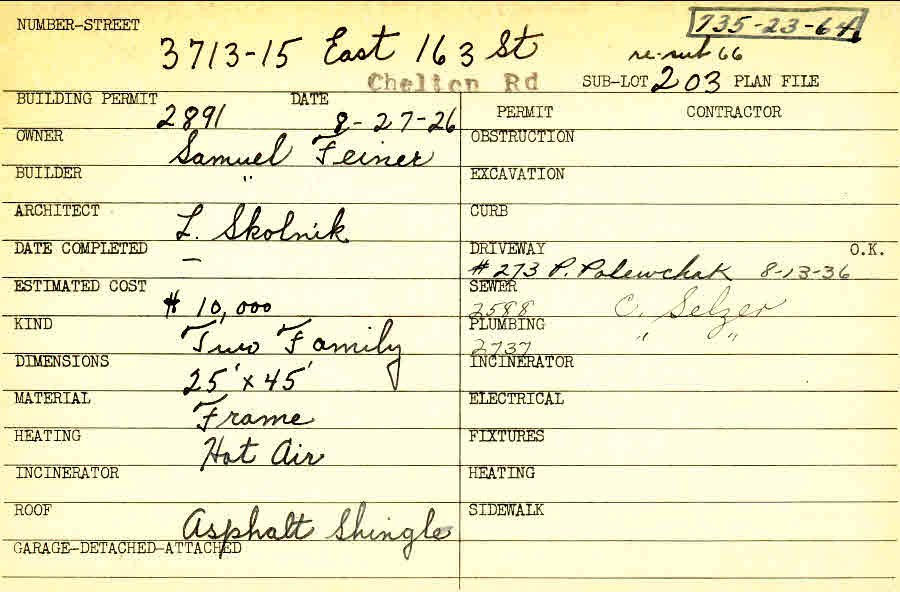 NUMBER-STREET
735-23-64
3713-15 East 163 St
re-sub 66
Chelton Rd
SUB-LOT 203 PLAN FILE
BUILDING PERMIT DATE
2891 8-27-26
PERMIT CONTRACTOR
OWNER
Samuel Feiner
OBSTRUCTION
BUILDER
"
EXCAVATION
ARCHITECT
L. Skolnik
CURB
DATE COMPLETED
-
DRIVEWAY O.K.
# 273 P. Polewchak 8-13-36
ESTIMATED COST
$ 10,000
SEWER
2588 C. Selzer
KIND
Two Family
PLUMBING
2737 " "
DIMENSIONS
25' x 45'
INCINERATOR
MATERIAL
Frame
ELECTRICAL
HEATING
Hot Air
FIXTURES
INCINERATOR
HEATING
ROOF
Asphalt Shingle
SIDEWALK
GARAGE-DETACHED-ATTACHED